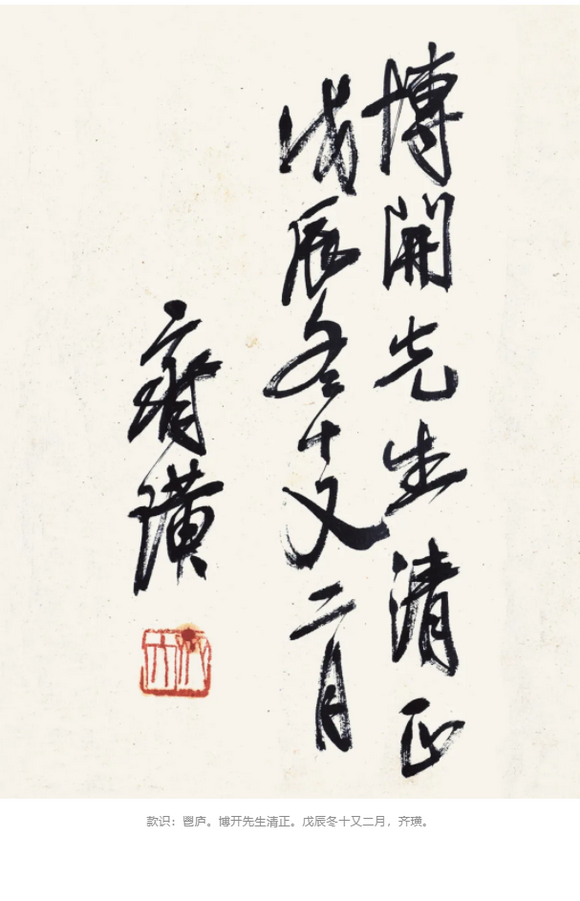 博開先生清正
戊辰冬十又二月
齊璜
木人
款识：鬯庐。博开先生清正。戊辰冬十又二月，齐璜。